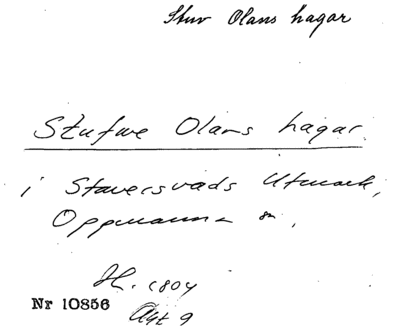 Stuv Olans hagar
Stufwe Olans hagar
i Staversvads Utmark,
Oppmanna sn,
Sk. 1804
Akt 9
Nr 10856